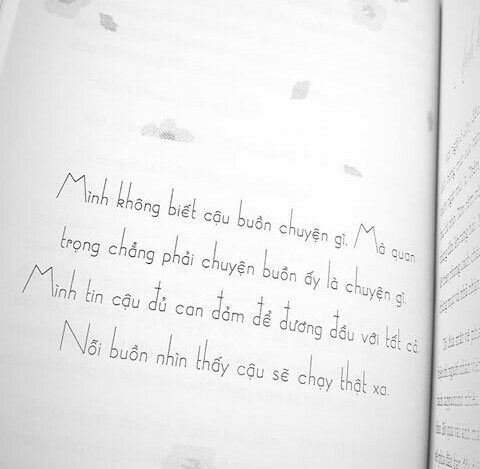 Mình không biết cậu buồn chuyện gì. Mà quan
trọng chẳng phải chuyện buồn ấy là chuyện gì.
Mình tin cậu đủ can đảm để đương đầu với tất cả.
Nỗi buồn nhìn thấy cậu sẽ chạy thật xa.